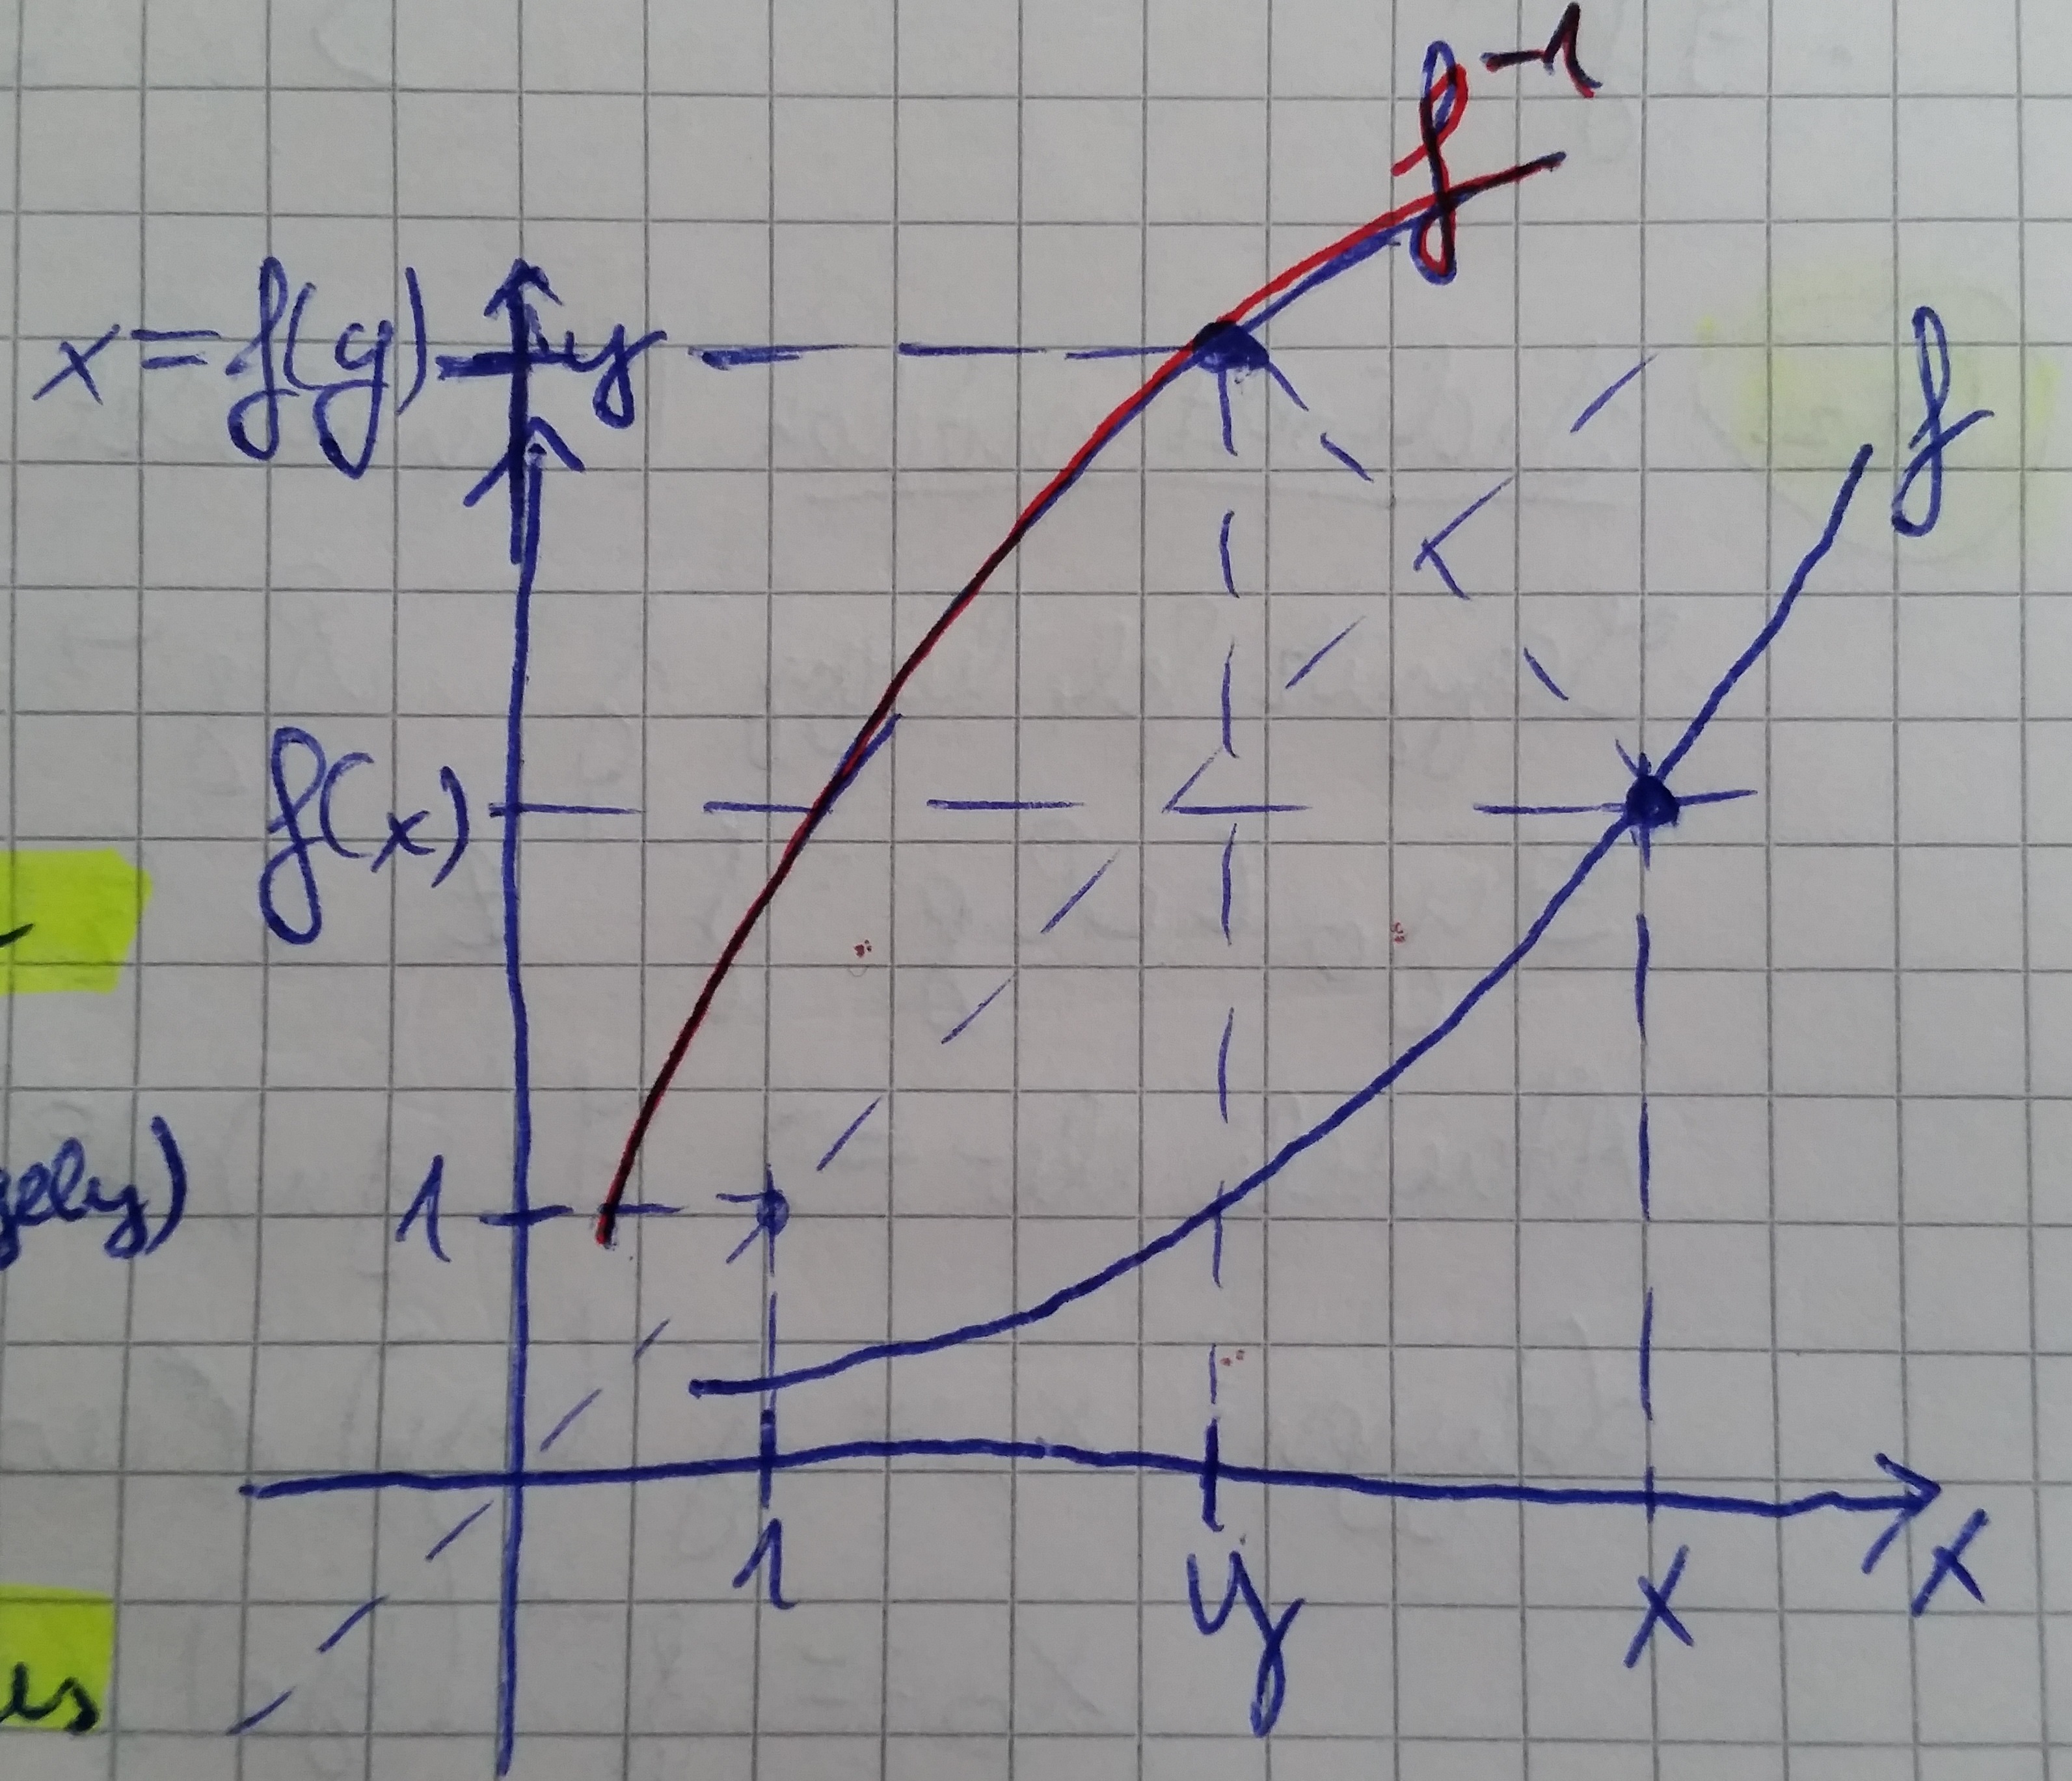 f⁻¹
x = f(y) y
f
f(x)
1
gely)
1 y x x
us